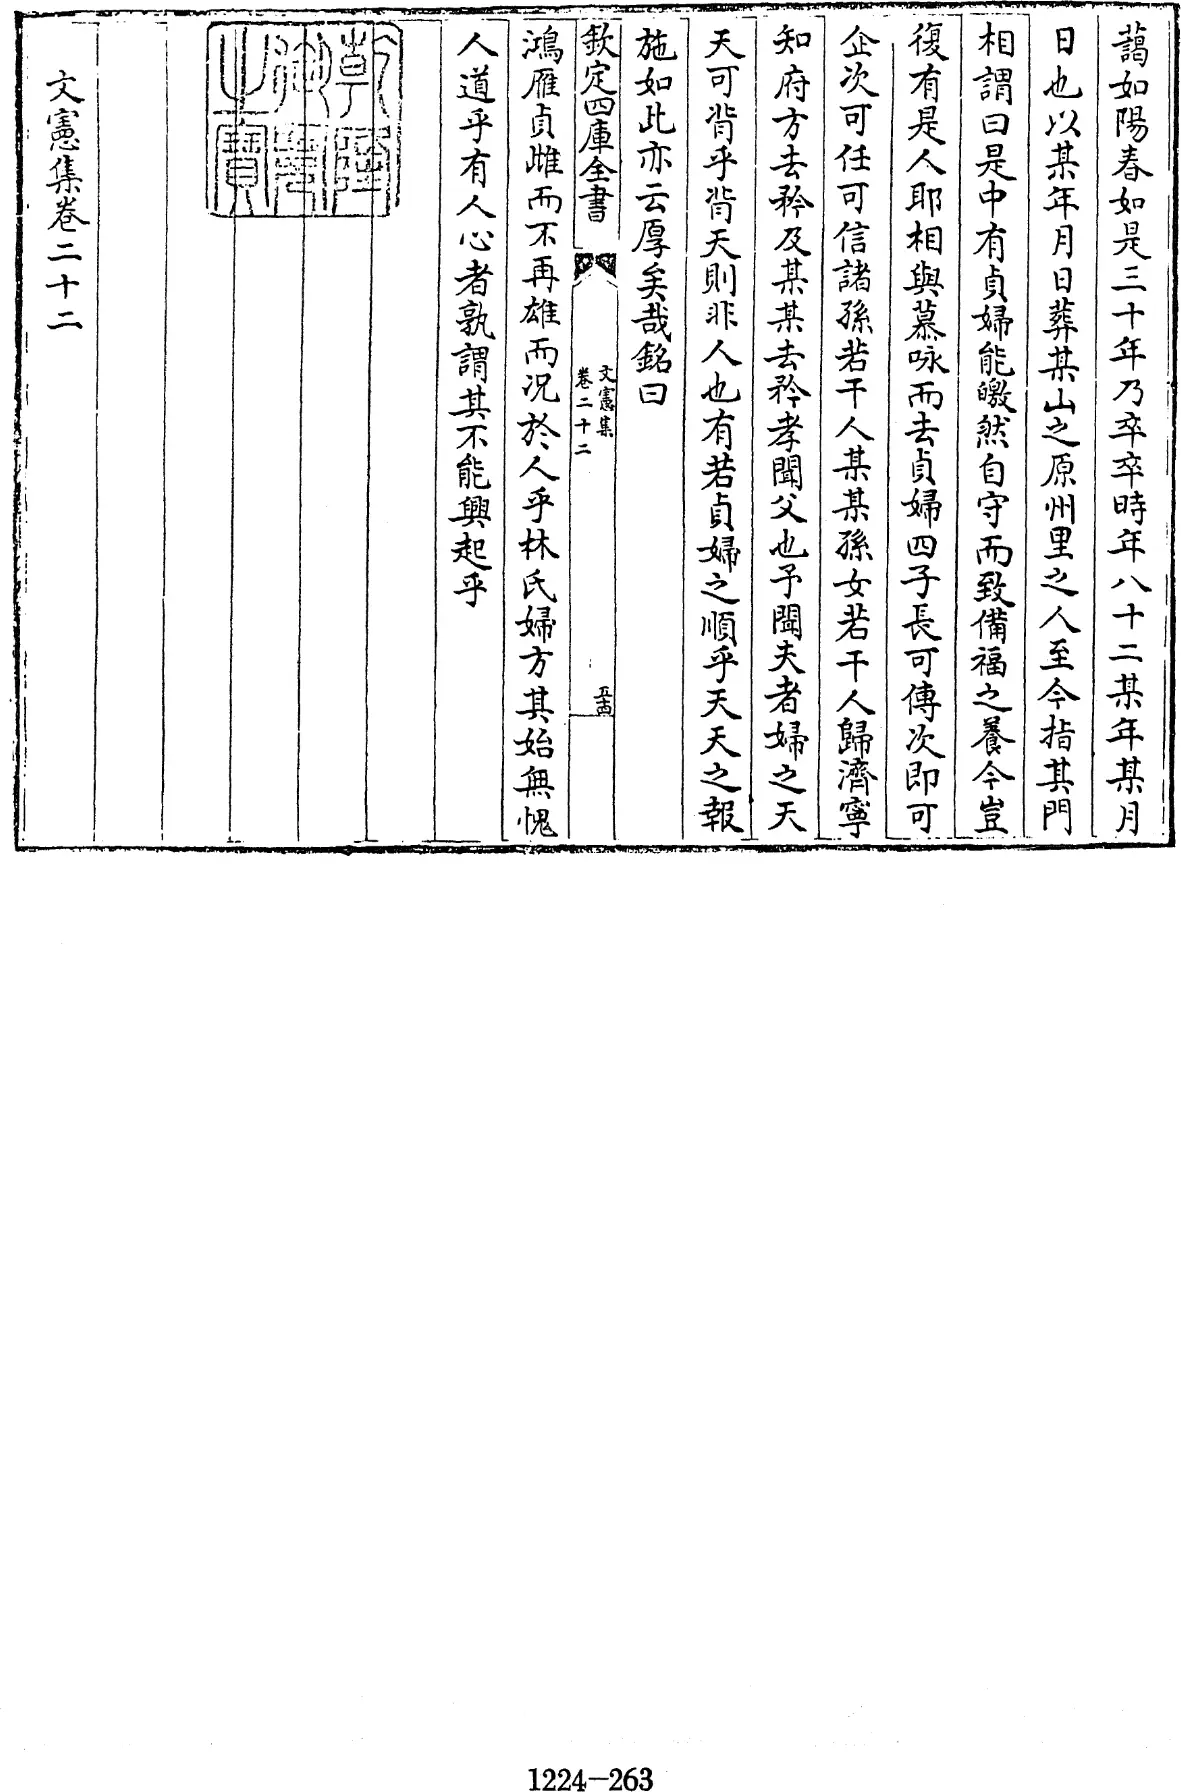 藹如陽春如是三十年乃卒卒時年八十二某年某月
日也以某年月日葬某山之原州里之人至今指其門
相謂曰是中有貞婦能皦然自守而致備福之養今豈
復有是人耶相與慕咏而去貞婦四子長可傳次即可
企次可任可信諸孫若干人某某孫女若干人歸濟寧
知府方去矜及某某去矜孝聞父也予聞夫者婦之天
天可背乎背天則非人也有若貞婦之順乎天天之報
施如此亦云厚矣哉銘曰
欽定四庫全書
文憲集
卷二十二
五十四
鴻雁貞雌而不再雄而况於人乎林氏婦方其始無愧
人道乎有人心者孰謂其不能興起乎
乾隆御覽之寶
文憲集卷二十二
1224-263